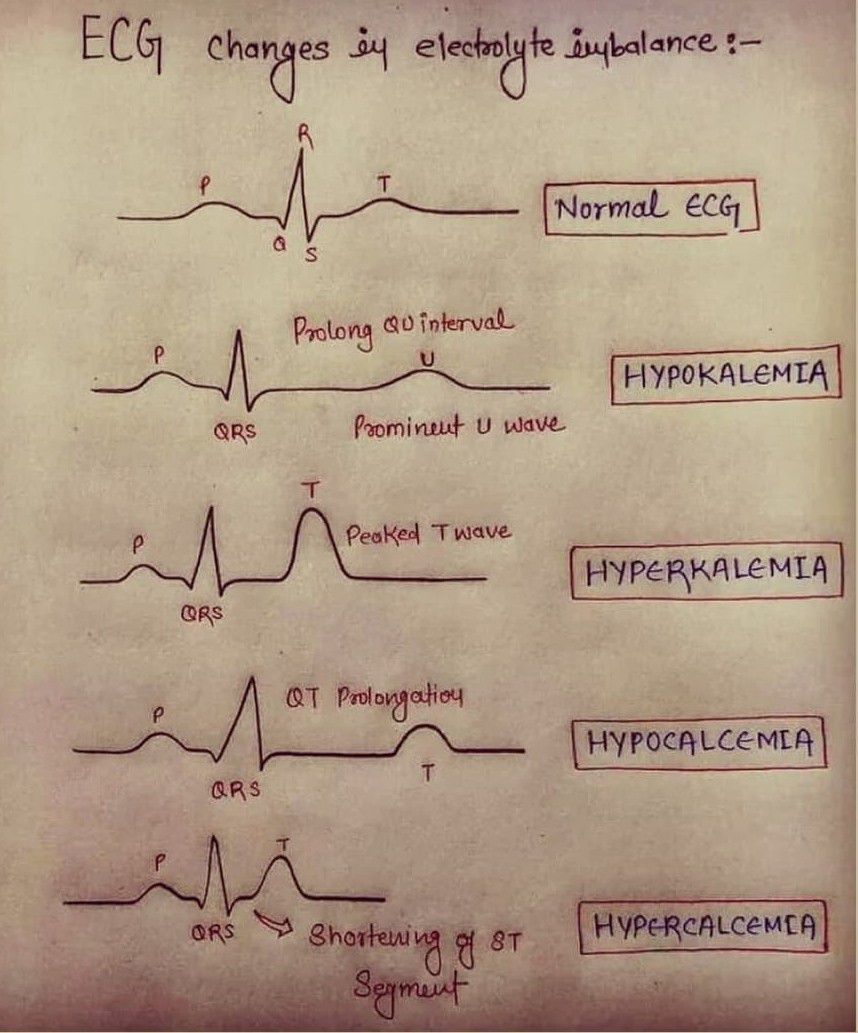 ECG changes in electrolyte imbalance :-
R
P
T
Q
S
Normal ECG
Prolong QU interval
P
U
HYPOKALEMIA
QRS
Prominent U wave
T
P
Peaked T wave
HYPERKALEMIA
QRS
QT Prolongation
P
HYPOCALCEMIA
T
QRS
P
T
QRS
Shortening of ST
Segment
HYPERCALCEMIA